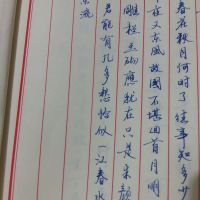 春花秋月何时了往事知多少
夜又东風故國不堪回首月明
雕栏玉砌應犹在只是朱颜
君能有几多愁恰似一江春水
东流